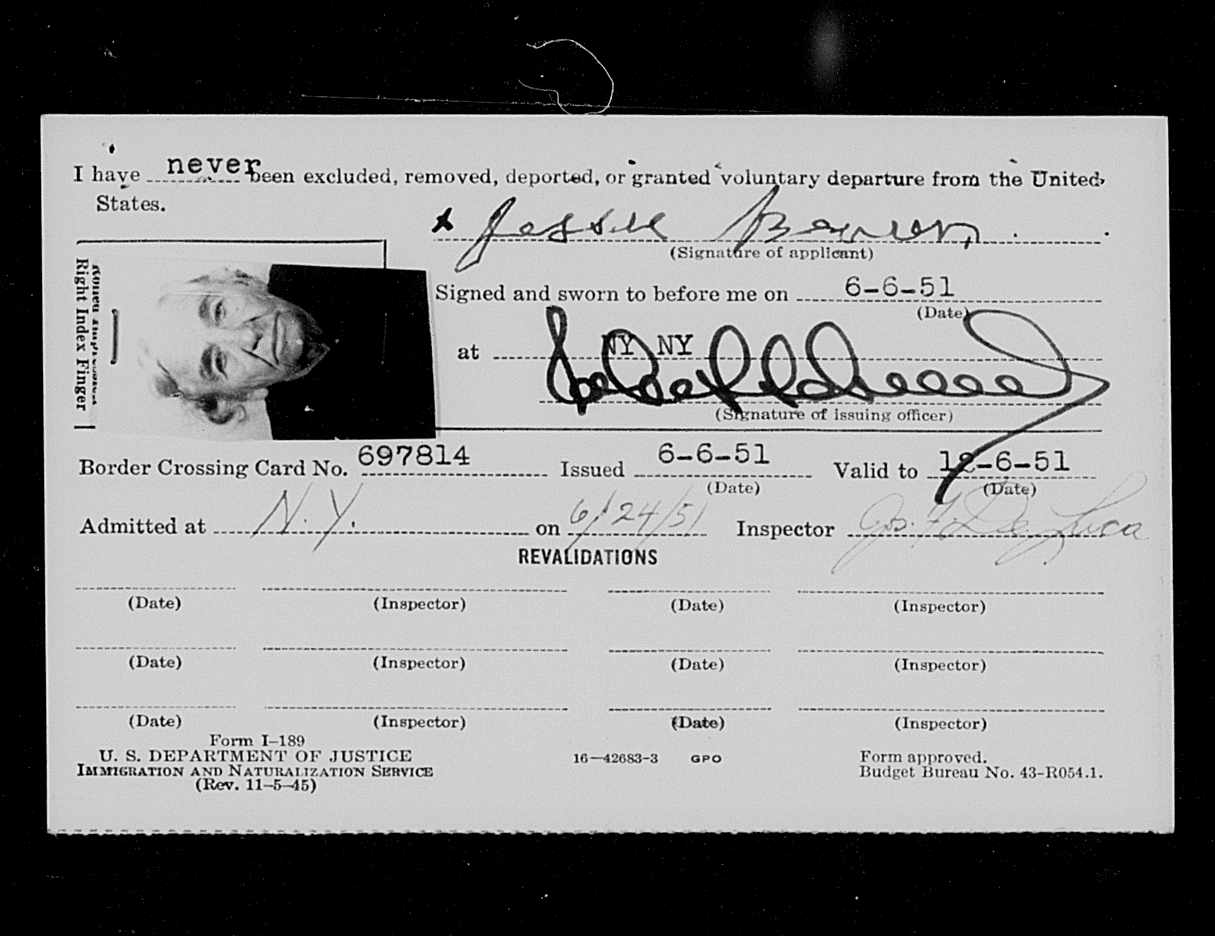 I have never been excluded, removed, deported, or granted voluntary departure from the United
States.
x Jessie
(Signature of applicant)
Right Index Finger
Signed and sworn to before me on 6-6-51
(Date)
at NY NY
(Signature of issuing officer)
Border Crossing Card No. 697814 Issued 6-6-51 Valid to 12-6-51
(Date) (Date)
Admitted at N.Y. on 6/24/51 Inspector Jos. F. De Luca
REVALIDATIONS
(Date) (Inspector) (Date) (Inspector)
(Date) (Inspector) (Date) (Inspector)
(Date) (Inspector) (Date) (Inspector)
Form I-189
U. S. DEPARTMENT OF JUSTICE 16—42683-3 GPO Form approved.
IMMIGRATION AND NATURALIZATION SERVICE Budget Bureau No. 43-R054.1.
(Rev. 11-5-45)